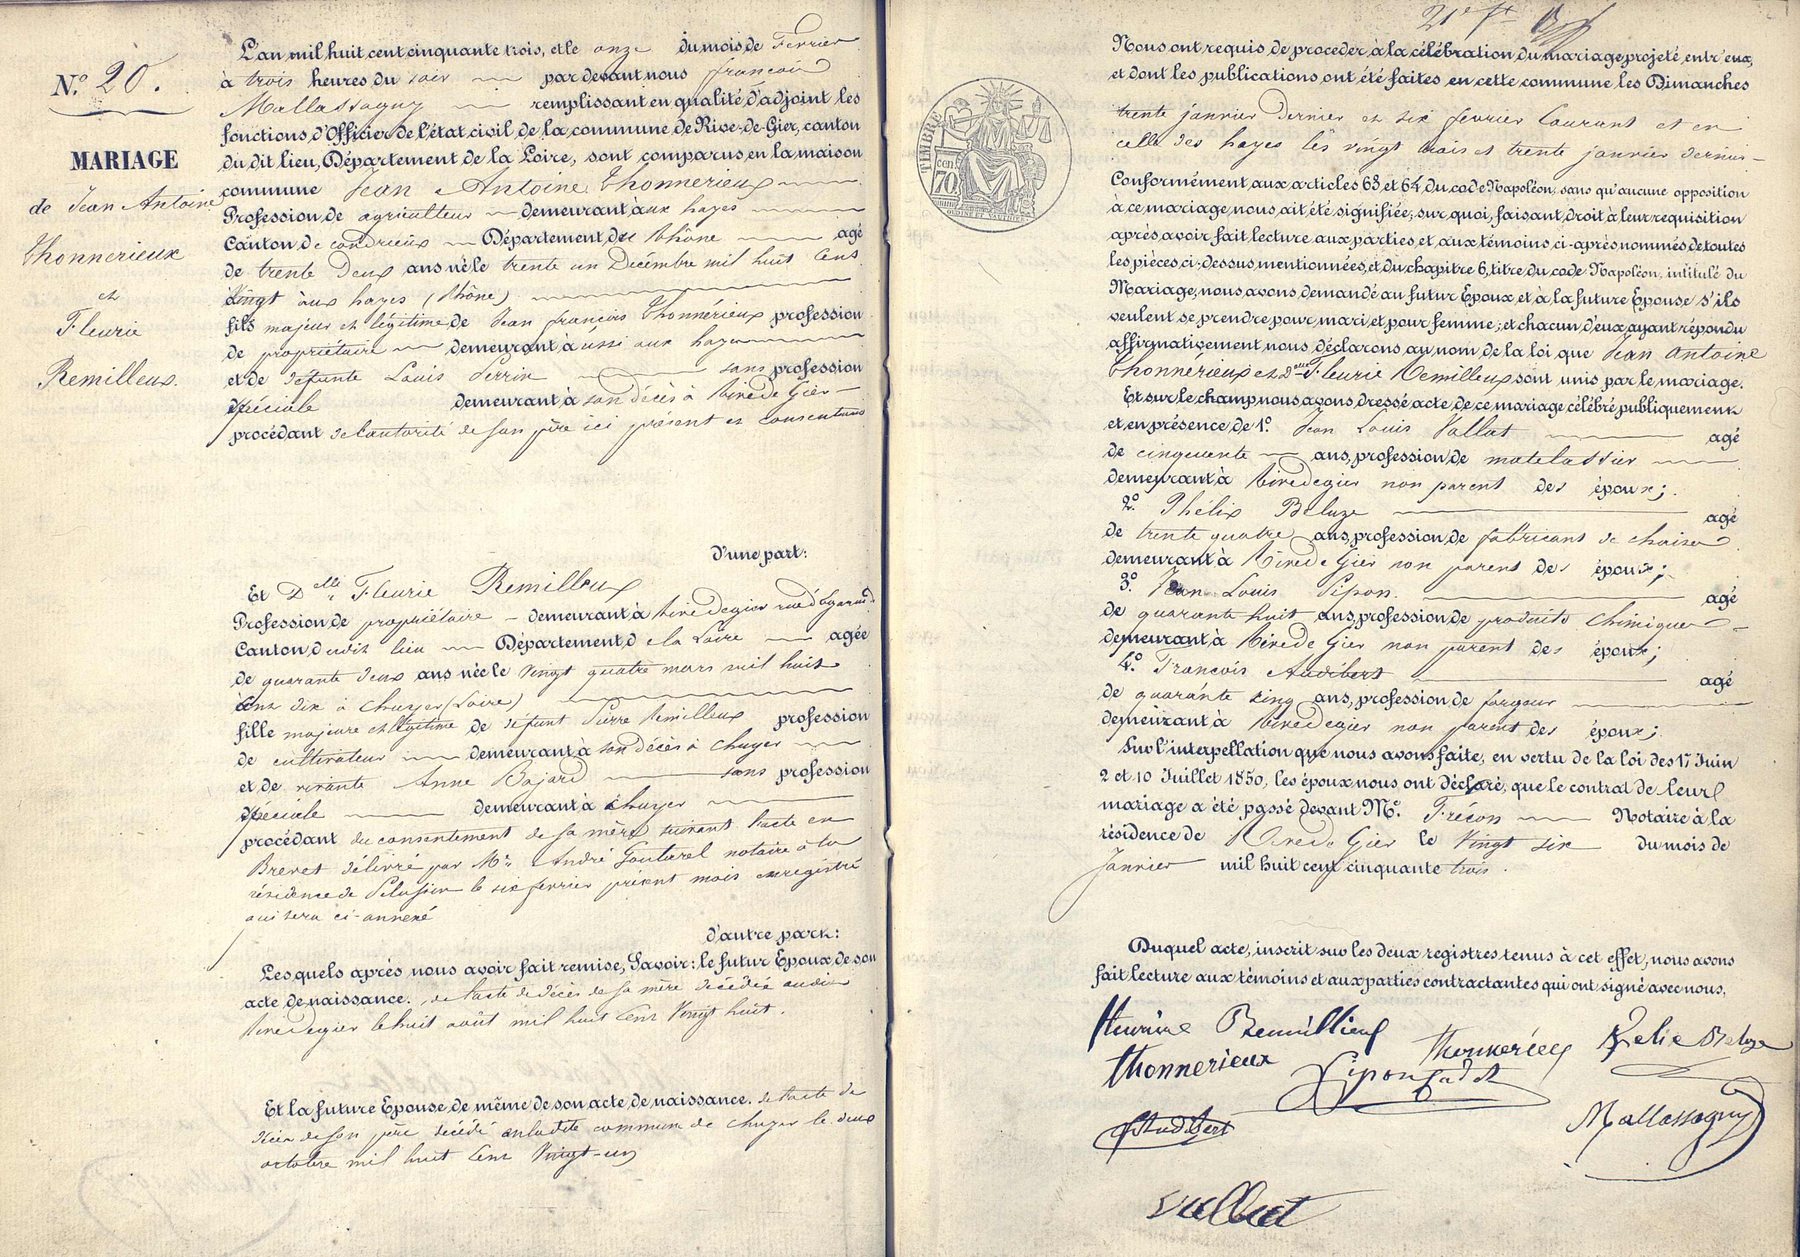 N.º 20.
MARIAGE
de Jean Antoine
Thonnerieux
et
Fleurie
Remilleux.
L'an mil huit cent cinquante trois, et le onze du mois de Février
à trois heures du soir par devant nous françois
Mallassagny remplissant en qualité d'adjoint les
fonctions d'Officier de l'état civil de la commune de Rive-de-Gier, canton
du dit lieu, Département de la Loire, sont comparus en la maison
commune Jean Antoine Thonnerieux
Profession de agriculteur demeurant à aux hayes
Canton de condrieux Département du Rhône agé
de trente deux ans né le trente un Décembre mil huit Cent
Vingt aux hayes (Rhône)
fils majeur et légitime de Jean françois Thonnérieux profession
de propriétaire demeurant à aussi aux hayes
et de défunte Louis Perrin sans profession
spéciale demeurant à son décès à Rivede Gier
procédant de l'autorité de son père ici présent et consentant
d'une part:
Et Delle Fleurie Remilleux
Profession de propriétaire demeurant à Rivedegier rue d'égarande
Canton dudit lieu Département de la Loire agée
de quarante deux ans née le vingt quatre mars mil huit
Cent dix à Chuyer (Loire)
fille majeure et légitime de défunt Pierre Remilleux profession
de cultivateur demeurant à son décès à Chuyer
et de vivante Anne Bajard sans profession
spéciale demeurant à Chuyer
procédant du consentement de sa mère suivant l'acte en
Brevet délivré par Me André Gouturel notaire à la
résidence de Pelussin le six fevrier présent mois enregistré
qui sera ci-annexé
d'autre part:
Lesquels après nous avoir fait remise, Savoir: le futur Epoux, de son
acte de naissance. de l'acte de décès de sa mère décédée audit
Rivedegier le huit août mil huit Cent Vingt huit.
Et la future Epouse, de même de son acte de naissance. de l'acte de
décès de son père décédé en la dite commune de Chuyer le deux
octobre mil huit Cent Vingt-un
21e ft
TIMBRE
cen
70
Nous ont requis de proceder à la célébration du mariage projeté entr'eux,
et dont les publications ont été faites en cette commune les Dimanches
trente janvier dernier et six fevrier Courant et en
celle des hayes les vingt trois et trente janvier dernier
Conformément aux articles 63 et 64 du code Napoléon, sans qu'aucune opposition
à ce mariage nous ait été signifiée; sur quoi, faisant droit à leur requisition
après avoir fait lecture aux parties et aux témoins ci-après nommés de toutes
les pièces ci-dessus mentionnées, et du chapitre 6, titre du code Napoléon, intitulé du
Mariage, nous avons demandé au futur Epoux et à la future Epouse s'ils
veulent se prendre pour mari et pour femme; et chacun d'eux ayant répondu
affirmativement nous déclarons au nom de la loi que Jean Antoine
Thonnérieux et Delle Fleurie Remilleux sont unis par le mariage.
Et sur le champ nous avons dressé acte de ce mariage célébré publiquement
et en présence de 1º. Jean Louis Vallat agé
de cinquante ans, profession de matelassier
demeurant à Rivedegier non parent des époux;
2º. Phélix Beluze agé
de trente quatre ans, profession de fabricant de chaises
demeurant à Rivede Gier non parent des époux;
3º. Jean Louis Pipon. agé
de quarante huit ans, profession de produits chimiques
demeurant à Rivede Gier non parent des époux;
4º. François Audibert agé
de quarante cinq ans, profession de forgeur
demeurant à Rivedegier non parent des époux;
Sur l'interpellation que nous avons faite, en vertu de la loi des 17 Juin
2 et 10 Juillet 1850, les époux nous ont déclaré, que le contrat de leur
mariage a été passé devant Me. Frécon Notaire à la
résidence de Rivede Gier le Vingt six du mois de
Janvier mil huit cent cinquante trois.
Duquel acte, inscrit sur les deux registres tenus à cet effet, nous avons
fait lecture aux témoins et aux parties contractantes qui ont signé avec nous.
fleurine Remillieux
Thonnerieux Thonnerieux Felix Beluze
Pipon
Audibert Mallassagny